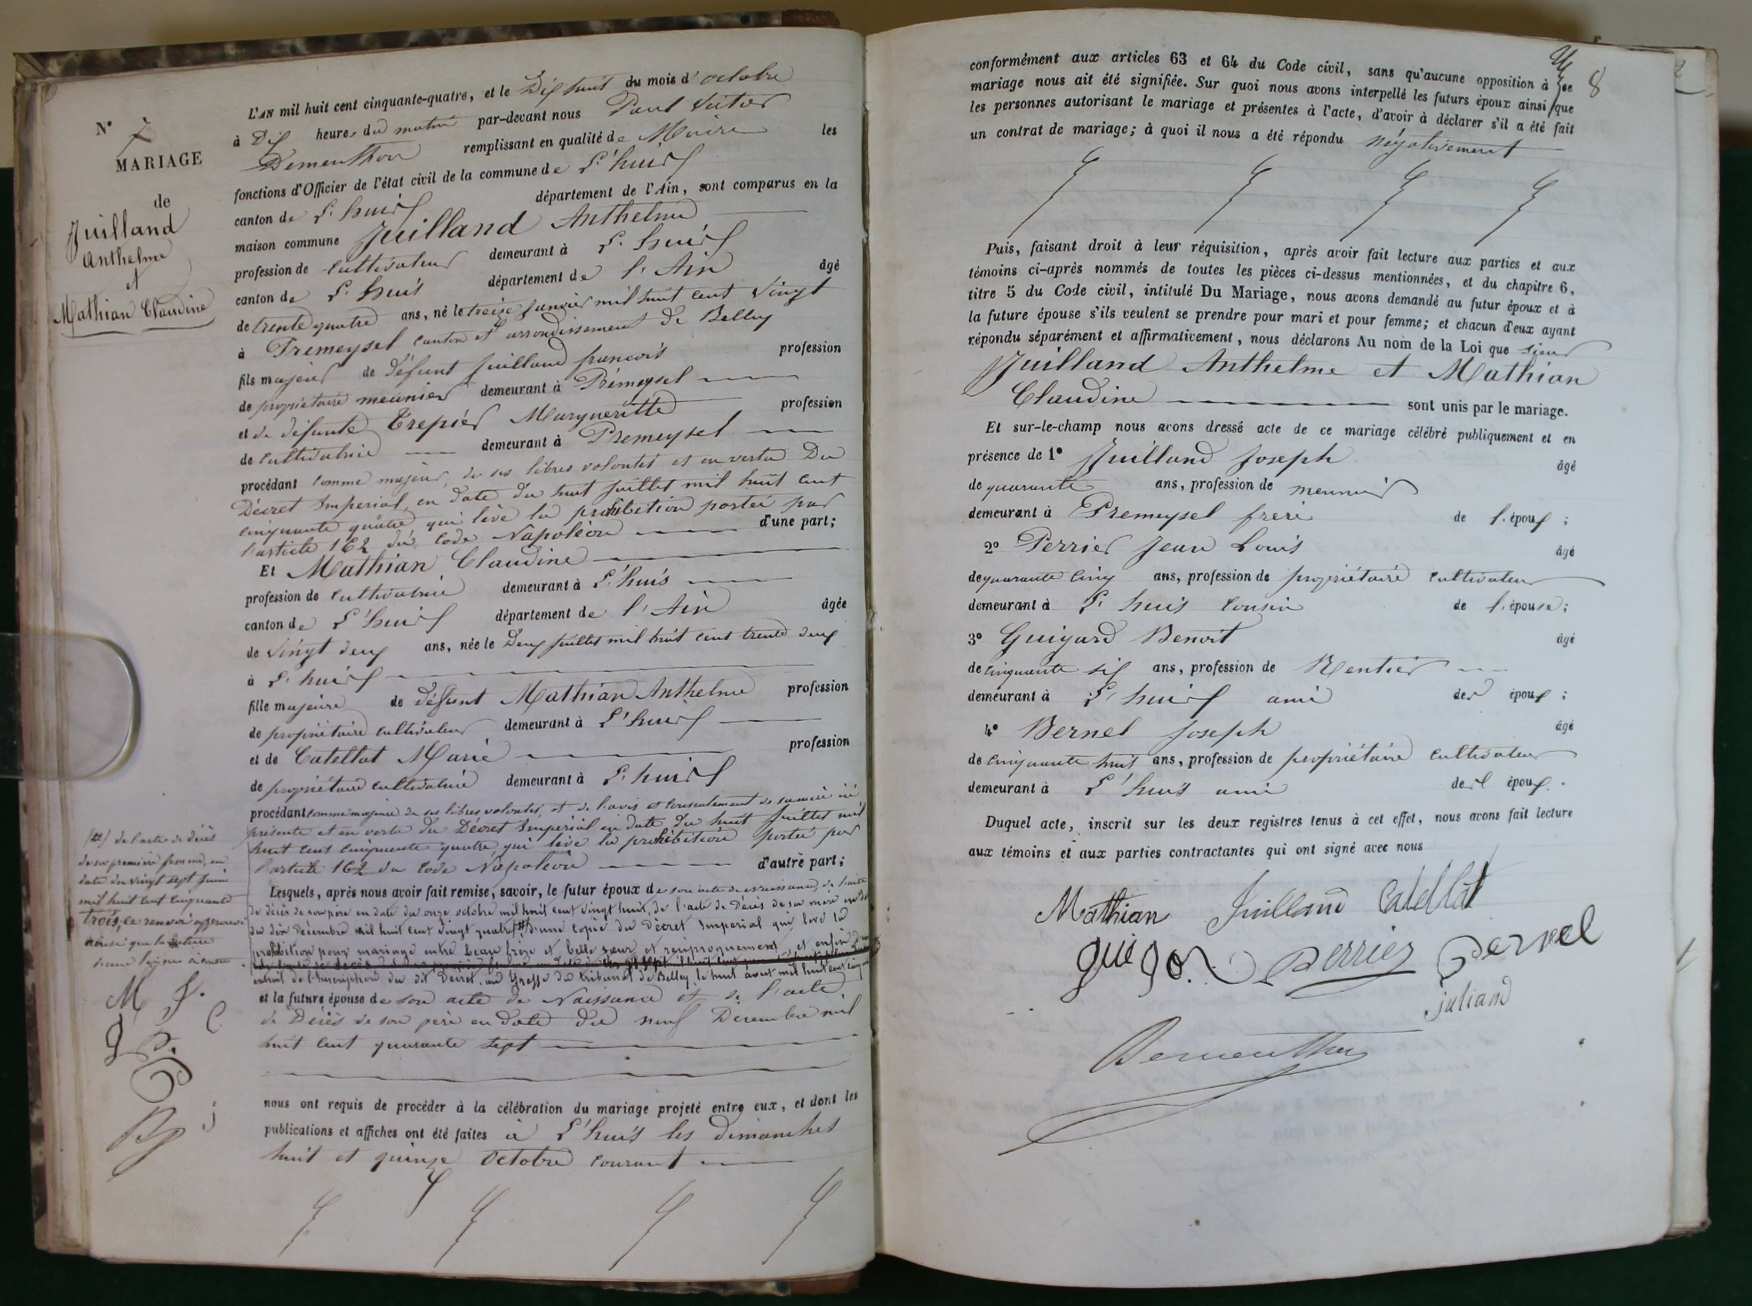 N° 7
MARIAGE
de
Juilland
Anthelme
et
Mathian Claudine
L'AN mil huit cent cinquante-quatre, et le Dix huit du mois d'octobre
à Dix heures du matin par-devant nous Paul
Dementhon remplissant en qualité de Maire les
fonctions d'Officier de l'état civil de la commune de L'huis
canton de L'huis département de l'Ain, sont comparus en la
maison commune Juilland Anthelme
profession de cultivateur demeurant à L'huis
canton de L'huis département de l'Ain âgé
de trente quatre ans, né le treize janvier mil huit cent vingt
à Premeysel canton et arrondissement de Belley
fils majeur de défunt Juilland françois profession
de propriétaire meunier demeurant à Prémeysel
et de défunte Trepier Margueritte profession
de cultivatrice demeurant à Premeysel
procédant comme majeur, de ses libres volontés et en vertu Du
Décret Impérial, en date du huit juillet mil huit cent
cinquante quatre qui lève la prohibition portée par
l'article 162 du code Napoléon d'une part;
Et Mathian Claudine
profession de cultivatrice demeurant à L'huis
canton de L'huis département de l'Ain âgée
de vingt deux ans, née le Deux juillet mil huit cent trente deux
à L'huis
fille majeure de défunt Mathian Anthelme profession
de propriétaire cultivateur demeurant à L'huis
et de Catellat Marie profession
de propriétaire cultivatrice demeurant à L'huis
procédant comme majeure de ses libres volontés, et de l'avis et consentement de sa mère ici
présente et en vertu du Décret Impérial en date du huit juillet mil
huit cent cinquante quatre, qui lève la prohibition portée par
l'article 162 du code Napoléon d'autre part;
Lesquels, après nous avoir fait remise, savoir, le futur époux de son acte de naissance, de l'acte
de décès de son père en date du onze octobre mil huit cent vingt huit, de l'acte de Décès de sa mère en date
du dix Décembre mil huit cent vingt quatre, d'une copie du Décret Impérial qui lève la
prohibition pour mariage entre beau frère et belle sœur et réciproquement, et enfin d'un
extrait de l'inscription du dit Décret au Greffe du tribunal de Belley, le huit août mil huit cent
et la future épouse de son acte de Naissance et de l'acte
de Décès de son père en date du neuf Décembre mil
huit cent quarante sept
nous ont requis de procéder à la célébration du mariage projeté entre eux, et dont les
publications et affiches ont été faites à L'huis les dimanches
huit et quinze octobre courant
de l'acte de décès
de sa première femme, en
date du vingt sept juin
mil huit cent cinquante
trois, ce renvoi approuvé
ainsi que la
M J.
C
g P.
B
8
conformément aux articles 63 et 64 du Code civil, sans qu'aucune opposition à ce
mariage nous ait été signifiée. Sur quoi nous avons interpellé les futurs époux ainsi que
les personnes autorisant le mariage et présentes à l'acte, d'avoir à déclarer s'il a été fait
un contrat de mariage; à quoi il nous a été répondu négativement
Puis, faisant droit à leur réquisition, après avoir fait lecture aux parties et aux
témoins ci-après nommés de toutes les pièces ci-dessus mentionnées, et du chapitre 6,
titre 5 du Code civil, intitulé Du Mariage, nous avons demandé au futur époux et à
la future épouse s'ils veulent se prendre pour mari et pour femme; et chacun d'eux ayant
répondu séparément et affirmativement, nous déclarons Au nom de la Loi que sieur
Juilland Anthelme et Mathian
Claudine sont unis par le mariage.
Et sur-le-champ nous avons dressé acte de ce mariage célébré publiquement et en
présence de 1° Juilland Joseph âgé
de quarante ans, profession de meunier
demeurant à Premeysel frère de l'époux;
2° Perrier Jean Louis âgé
de quarante cinq ans, profession de propriétaire cultivateur
demeurant à L'huis cousin de l'épouse;
3° Guigard Benoit âgé
de cinquante six ans, profession de Rentier
demeurant à L'huis ami des époux;
4° Bernel Joseph âgé
de cinquante huit ans, profession de propriétaire cultivateur
demeurant à L'huis ami des époux.
Duquel acte, inscrit sur les deux registres tenus à cet effet, nous avons fait lecture
aux témoins et aux parties contractantes qui ont signé avec nous
Mathian Juilland Catellat
guigar Perrier Bernel
juliand
Dementhon